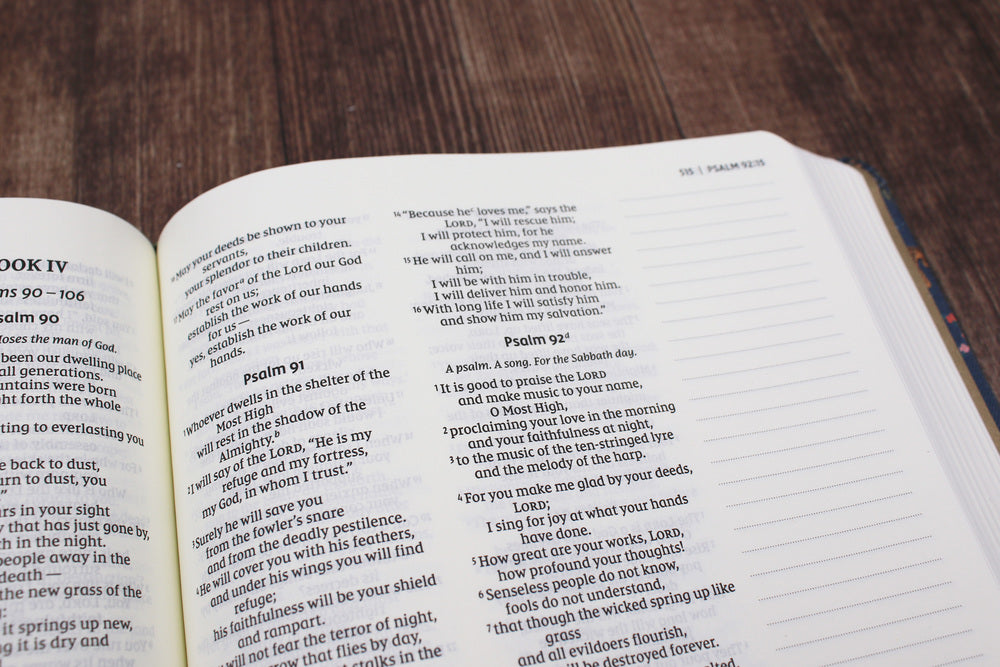 OOK IV
ms 90 – 106
salm 90
Moses the man of God.
been our dwelling place
all generations.
untains were born
ght forth the whole
ting to everlasting you
e back to dust,
urn to dust, you
”
rs in your sight
y that has just gone by,
ch in the night.
people away in the
death —
the new grass of the
:
it springs up new,
ng it is dry and
515 | PSALM 92:15
16 May your deeds be shown to your
servants,
your splendor to their children.
17 May the favor a of the Lord our God
rest on us;
establish the work of our hands
for us —
yes, establish the work of our
hands.
Psalm 91
1 Whoever dwells in the shelter of the
Most High
will rest in the shadow of the
Almighty. b
2 I will say of the LORD, “He is my
refuge and my fortress,
my God, in whom I trust.”
3 Surely he will save you
from the fowler’s snare
and from the deadly pestilence.
4 He will cover you with his feathers,
and under his wings you will find
refuge;
his faithfulness will be your shield
and rampart.
will not fear the terror of night,
rrow that flies by day,
stalks in the
14 “Because he c loves me,” says the
LORD, “I will rescue him;
I will protect him, for he
acknowledges my name.
15 He will call on me, and I will answer
him;
I will be with him in trouble,
I will deliver him and honor him.
16 With long life I will satisfy him
and show him my salvation.”
Psalm 92 d
A psalm. A song. For the Sabbath day.
1 It is good to praise the LORD
and make music to your name,
O Most High,
2 proclaiming your love in the morning
and your faithfulness at night,
3 to the music of the ten-stringed lyre
and the melody of the harp.
4 For you make me glad by your deeds,
LORD;
I sing for joy at what your hands
have done.
5 How great are your works, LORD,
how profound your thoughts!
6 Senseless people do not know,
fools do not understand,
7 that though the wicked spring up like
grass
and all evildoers flourish,
will be destroyed forever.